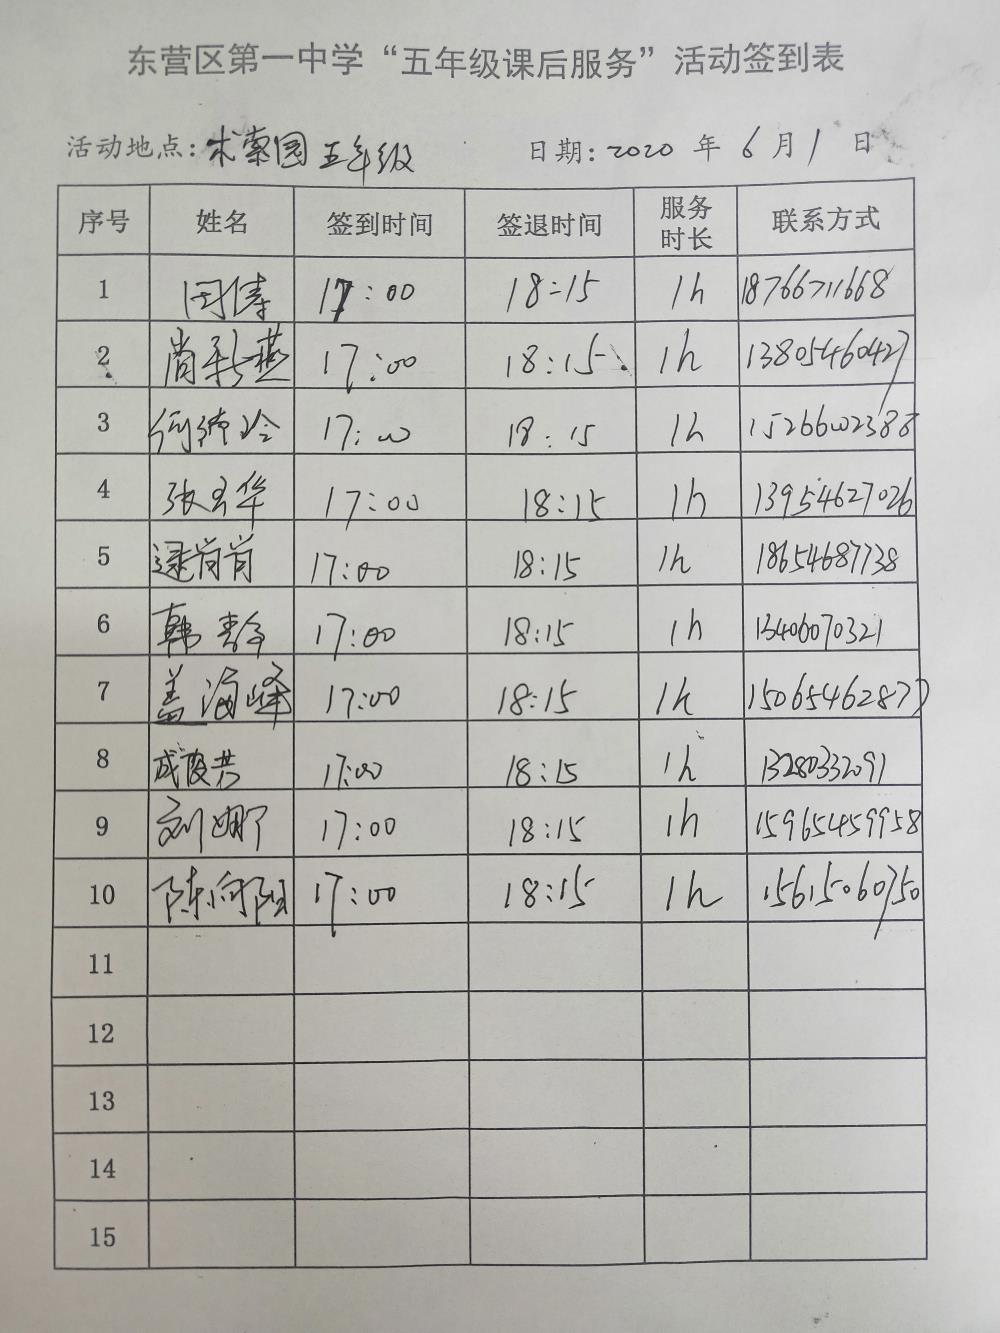 东营区第一中学“五年级课后服务”活动签到表
活动地点: 五年级 日期: 2020 年 6 月 1 日
序号 姓名 签到时间 签退时间 服务时长 联系方式
1 17:00 18:15 1h 18766711668
2 尚新燕 17:00 18:15 1h 13805460427
3 17:00 18:15 1h 15266002388
4 张玉华 17:00 18:15 1h 13954627026
5 逯肖肖 17:00 18:15 1h 18654687738
6 韩静 17:00 18:15 1h 13406070321
7 盖海峰 17:00 18:15 1h 15065462877
8 17:00 18:15 1h 13280332091
9 刘娜 17:00 18:15 1h 15965459958
10 陈向阳 17:00 18:15 1h 15615060750
11
12
13
14
15